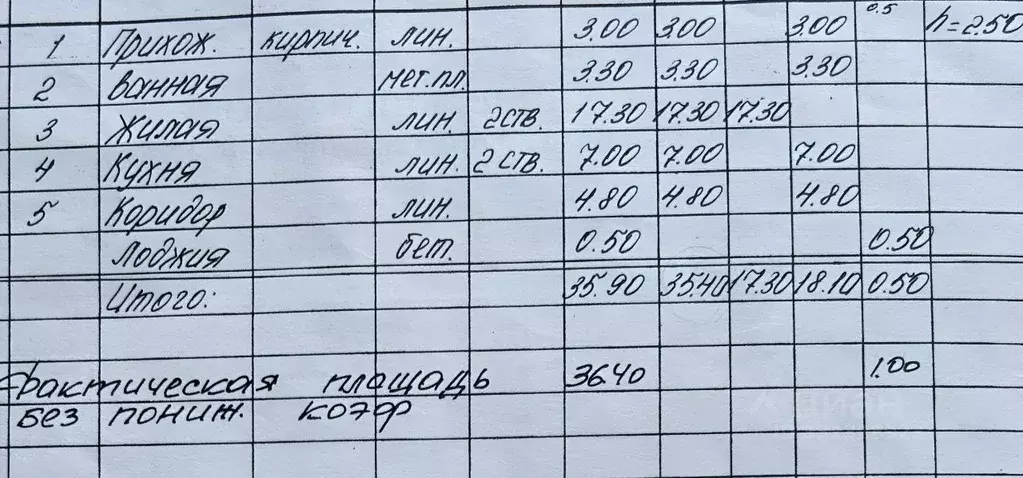 1 Прихож. кирпич. лин. 3.00 3.00 3.00 0.5 h=2.50
2 ванная мет.пл. 3.30 3.30 3.30
3 Жилая лин. 2ств. 17.30 17.30 17.30
4 Кухня лин. 2 ств. 7.00 7.00 7.00
5 Коридор лин. 4.80 4.80 4.80
Лоджия бет. 0.50 0.50
Итого: 35.90 35.40 17.30 18.10 0.50
Фрактическая площадь 36.40 1.00
без пониж. коэф